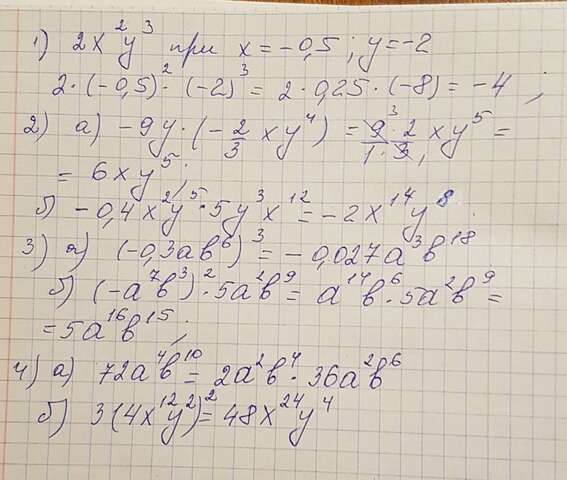 1) 2x²y³ при x = -0,5; y = -2
2·(-0,5)²·(-2)³ = 2·0,25·(-8) = -4;
2) а) -9y·(-2/3 xy⁴) = 9³·2/1·3₁ xy⁵ =
= 6xy⁵;
б) -0,4x²y⁵·5y³x¹² = -2x¹⁴y⁸
3) а) (-0,3ab⁶)³ = -0,027a³b¹⁸
б) (-a⁷b³)²·5a²b⁹ = a¹⁴b⁶·5a²b⁹ =
= 5a¹⁶b¹⁵;
4) а) 72a⁴b¹⁰ = 2a²b⁴·36a²b⁶
б) 3(4x¹²y²)² = 48x²⁴y⁴